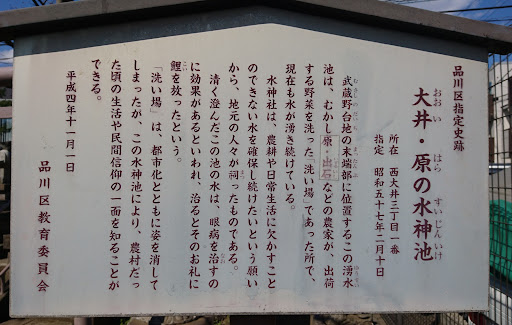 品川区指定史跡
大井・原の水神池
おおい はら すいじんいけ
所在 西大井三丁目一番
指定 昭和五十七年二月十日
武蔵野台地の末端部に位置するこの湧水
むさしのだいち まったんぶ ゆうすい
池は、むかし原・出石などの農家が、出荷
する野菜を洗った「洗い場」であった所で、
現在も水が湧き続けている。
水神社は、農耕や日常生活に欠かすこと
のできない水を確保し続けたいという願い
から、地元の人々が祠ったものである。
清く澄んだこの池の水は、眼病を治すの
に効果があるといわれ、治るとそのお礼に
鯉を放ったという。
こい
「洗い場」は、都市化とともに姿を消して
しまったが、この水神池により、農村だっ
た頃の生活や民間信仰の一面を知ることが
できる。
平成四年十一月一日
品川区教育委員会